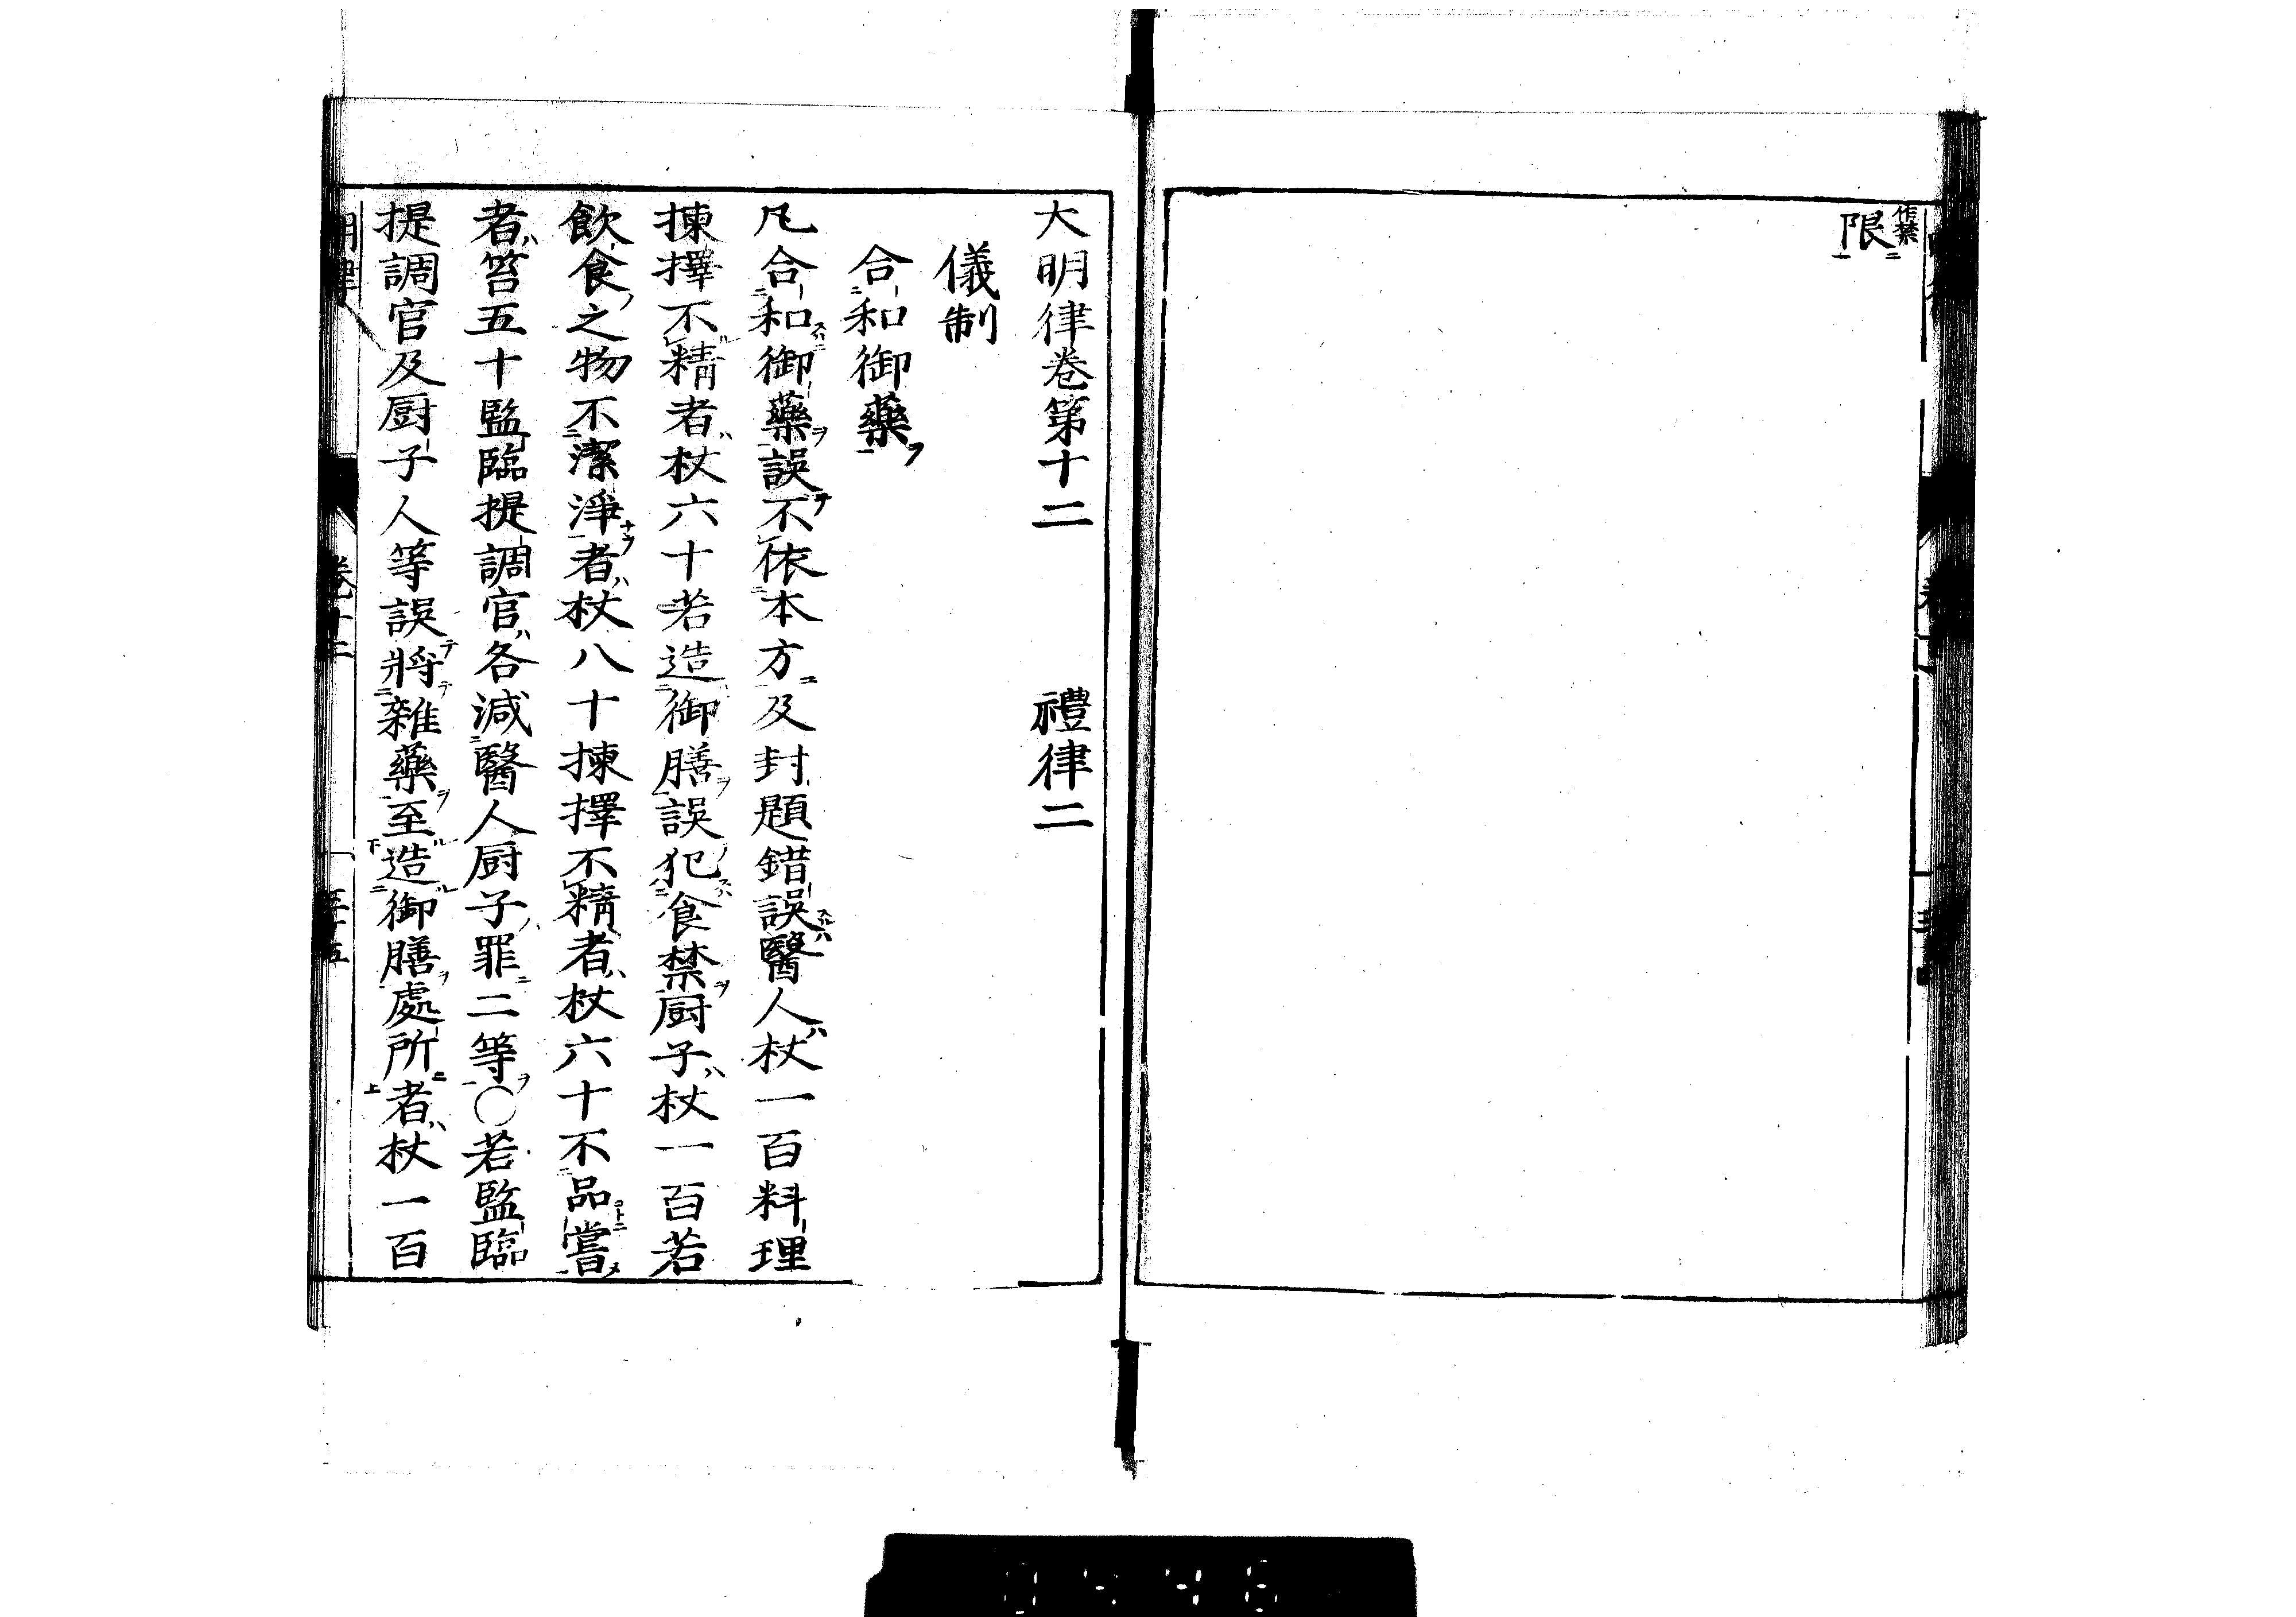 限
作禁
大明律卷第十二 禮律二
儀制
合和御藥
凡合和御藥誤不依本方及封題錯誤醫人杖一百料理
揀擇不精者杖六十若造御膳誤犯食禁厨子杖一百若
飲食之物不潔淨者杖八十揀擇不精者杖六十不品嘗
者笞五十監臨提調官各減醫人厨子罪二等〇若監臨
提調官及厨子人等誤將雜藥至造御膳處所者杖一百
卷十二